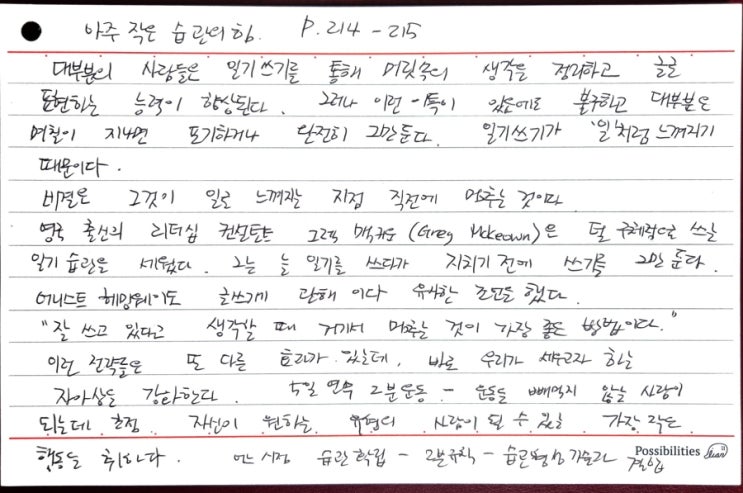 아주 작은 습관의 힘. P. 214 - 215
대부분의 사람들은 일기쓰기를 통해 머릿속의 생각을 정리하고 글을
표현하는 능력이 향상된다. 그러나 이런 이득이 있음에도 불구하고 대부분은
며칠이 지나면 포기하거나 완전히 그만둔다. 일기쓰기가 '일'처럼 느껴지기
때문이다.
비결은 그것이 일로 느껴지는 지점 직전에 멈추는 것이다
영국 출신의 리더십 컨설턴트 그렉 맥커운 (Greg Mckeown)은 덜 구체적으로 쓰는
일기 습관을 세웠다. 그는 늘 일기를 쓰다가 지치기 전에 쓰기를 그만 둔다.
어니스트 헤밍웨이도 글쓰기에 관해 이와 유사한 조언을 했다.
"잘 쓰고 있다고 생각할 때 거기서 멈추는 것이 가장 좋은 방법이다."
이런 전략들은 또 다른 효과가 있는데, 바로 우리가 세우고자 하는
자아상을 강화한다. 5일 연속 2분 운동 - 운동을 빼먹지 않는 사람이
되는데 초점 자신이 원하는 유형의 사람이 될 수 있는 가장 작은
행동을 취하다. 어느 시점 습관 확립 - 2분 규칙 - 습관 형성 기술과 결합
Possibilities